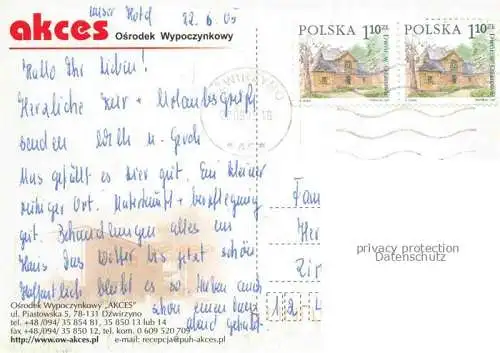 unser Hotel 22.6.05
akces
Ośrodek Wypoczynkowy
Hallo Ihr Lieben!
Herzliche Kur + Urlaubsgrüße
senden
Uns gefällt es hier gut. Ein kleiner
ruhiger Ort. Unterkunft + Verpflegung
gut. Behandlungen alles im
Haus das Wetter bis jetzt schön
Hoffentlich bleibt es so. Haben auch
schon einen
abend gehabt.
POLSKA 1.10 ZŁ
POLSKA 1.10 ZŁ
DŹWIRZYNO
Fam
Her
Zir
privacy protection
Datenschutz
1 2 4
Ośrodek Wypoczynkowy „AKCES"
ul. Piastowska 5, 78-131 Dźwirzyno
tel. +48 /094/ 35 854 81, 35 850 13 lub 14
fax +48 /094/ 35 850 12, tel. kom. 0 609 520 709
http://www.ow-akces.pl e-mail: recepcja@puh-akces.pl